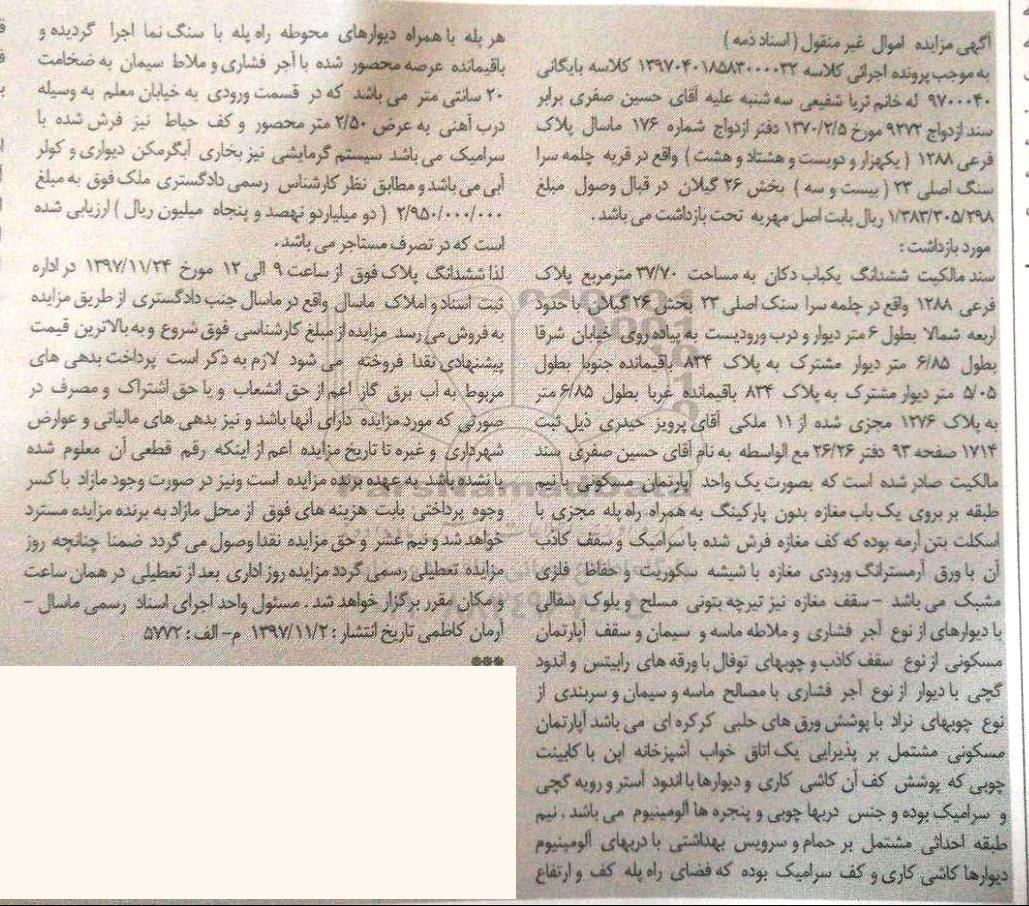 آگهی مزایده اموال غیر منقول (اسناد ذمه)
به موجب پرونده اجرائی کلاسه ۱۳۹۷۰۴۰۱۸۵۸۳۰۰۰۰۳۲ کلاسه بایگانی
۹۷۰۰۰۴۰ له خانم ثریا شفیعی سه شنبه علیه آقای حسین صفری برابر
سند ازدواج ۹۲۷۲ مورخ ۱۳۷۰/۲/۵ دفتر ازدواج شماره ۱۷۶ ماسال پلاک
فرعی ۱۲۸۸ (یکهزار و دویست و هشتاد و هشت) واقع در قریه چلمه سرا
سنگ اصلی ۲۳ (بیست و سه) بخش ۲۶ گیلان در قبال وصول مبلغ
۱/۳۸۳/۳۰۵/۲۹۸ ریال بابت اصل مهریه تحت بازداشت می باشد.
مورد بازداشت:
سند مالکیت ششدانگ یکباب دکان به مساحت ۳۷/۷۰ مترمربع پلاک
فرعی ۱۲۸۸ واقع در چلمه سرا سنک اصلی ۲۳ بخش ۲۶ گیلان با حدود
اربعه شمالا بطول ۶ متر دیوار و درب ورودیست به پیاده روی خیابان شرقا
بطول ۶/۸۵ متر دیوار مشترک به پلاک ۸۲۴ باقیمانده جنوبا بطول
۵/۰۵ متر دیوار مشترک به پلاک ۸۲۴ باقیمانده غربا بطول ۶/۸۵ متر
به پلاک ۱۲۷۶ مجزی شده از ۱۱ ملکی آقای پرویز حیدری ذیل ثبت
۱۷۱۴ صفحه ۹۳ دفتر ۲۶/۲۶ مع الواسطه به نام آقای حسین صفری سند
مالکیت صادر شده است که بصورت یک واحد آپارتمان مسکونی با نیم
طبقه بر بروی یک باب مغازه بدون پارکینگ به همراه راه پله مجزی با
اسکلت بتن آرمه بوده که کف مغازه فرش شده با سرامیک و سقف کاذب
آن با ورق آرمسترانگ ورودی مغازه با شیشه سکوریت و حفاظ فلزی
مشبک می باشد - سقف مغازه نیز تیرچه بتونی مسلح و بلوک سفالی
با دیوارهای از نوع آجر فشاری و ملاطه ماسه و سیمان و سقف آپارتمان
مسکونی از نوع سقف کاذب و چوبهای توفال با ورقه های رابیتس و اندود
گچی با دیوار از نوع آجر فشاری با مصالح ماسه و سیمان و سربندی از
نوع چوبهای نراد با پوشش ورق های حلبی کرکره ای می باشد آپارتمان
مسکونی مشتمل بر پذیرایی یک اتاق خواب آشپزخانه اپن با کابینت
چوبی که پوشش کف آن کاشی کاری و دیوارها با اندود آستر و رویه گچی
و سرامیک بوده و جنس دربها چوبی و پنجره ها آلومینیوم می باشد. نیم
طبقه احداثی مشتمل بر حمام و سرویس بهداشتی با دربهای آلومینیوم
دیوارها کاشی کاری و کف سرامیک بوده که فضای راه پله کف و ارتفاع
هر پله با همراه دیوارهای محوطه راه پله با سنگ نما اجرا گردیده و
باقیمانده عرصه محصور شده با آجر فشاری و ملاط سیمان به ضخامت
۲۰ سانتی متر می باشد که در قسمت ورودی به خیابان معلم به وسیله
درب آهنی به عرض ۲/۵۰ متر محصور و کف حیاط نیز فرش شده با
سرامیک می باشد سیستم گرمایشی نیز بخاری آبگرمکن دیواری و کولر
آبی می باشد و مطابق نظر کارشناس رسمی دادگستری ملک فوق به مبلغ
۲/۹۵۰/۰۰۰/۰۰۰ (دو میلیاردو نهصد و پنجاه میلیون ریال) ارزیابی شده
است که در تصرف مستاجر می باشد.
لذا ششدانگ پلاک فوق از ساعت ۹ الی ۱۲ مورخ ۱۳۹۷/۱۱/۲۴ در اداره
ثبت اسناد و املاک ماسال واقع در ماسال جنب دادگستری از طریق مزایده
به فروش می رسد مزایده از مبلغ کارشناسی فوق شروع و به بالاترین قیمت
پیشنهادی نقدا فروخته می شود لازم به ذکر است پرداخت بدهی های
مربوط به آب برق گاز اعم از حق انشعاب و یا حق اشتراک و مصرف در
صورتی که مورد مزایده دارای آنها باشد و نیز بدهی های مالیاتی و عوارض
شهرداری و غیره تا تاریخ مزایده اعم از اینکه رقم قطعی آن معلوم شده
یا نشده باشد به عهده برنده مزایده است ونیز در صورت وجود مازاد با کسر
وجوه پرداختی بابت هزینه های فوق از محل مازاد به برنده مزایده مسترد
خواهد شد و نیم عشر و حق مزایده نقدا وصول می گردد ضمنا چنانچه روز
مزایده تعطیلی رسمی گردد مزایده روز اداری بعد از تعطیلی در همان ساعت
و مکان مقرر برگزار خواهد شد. مسئول واحد اجرای اسناد رسمی ماسال -
آرمان کاظمی تاریخ انتشار: ۱۳۹۷/۱۱/۲ م-الف: ۵۷۷۲
***
ParsNamadData